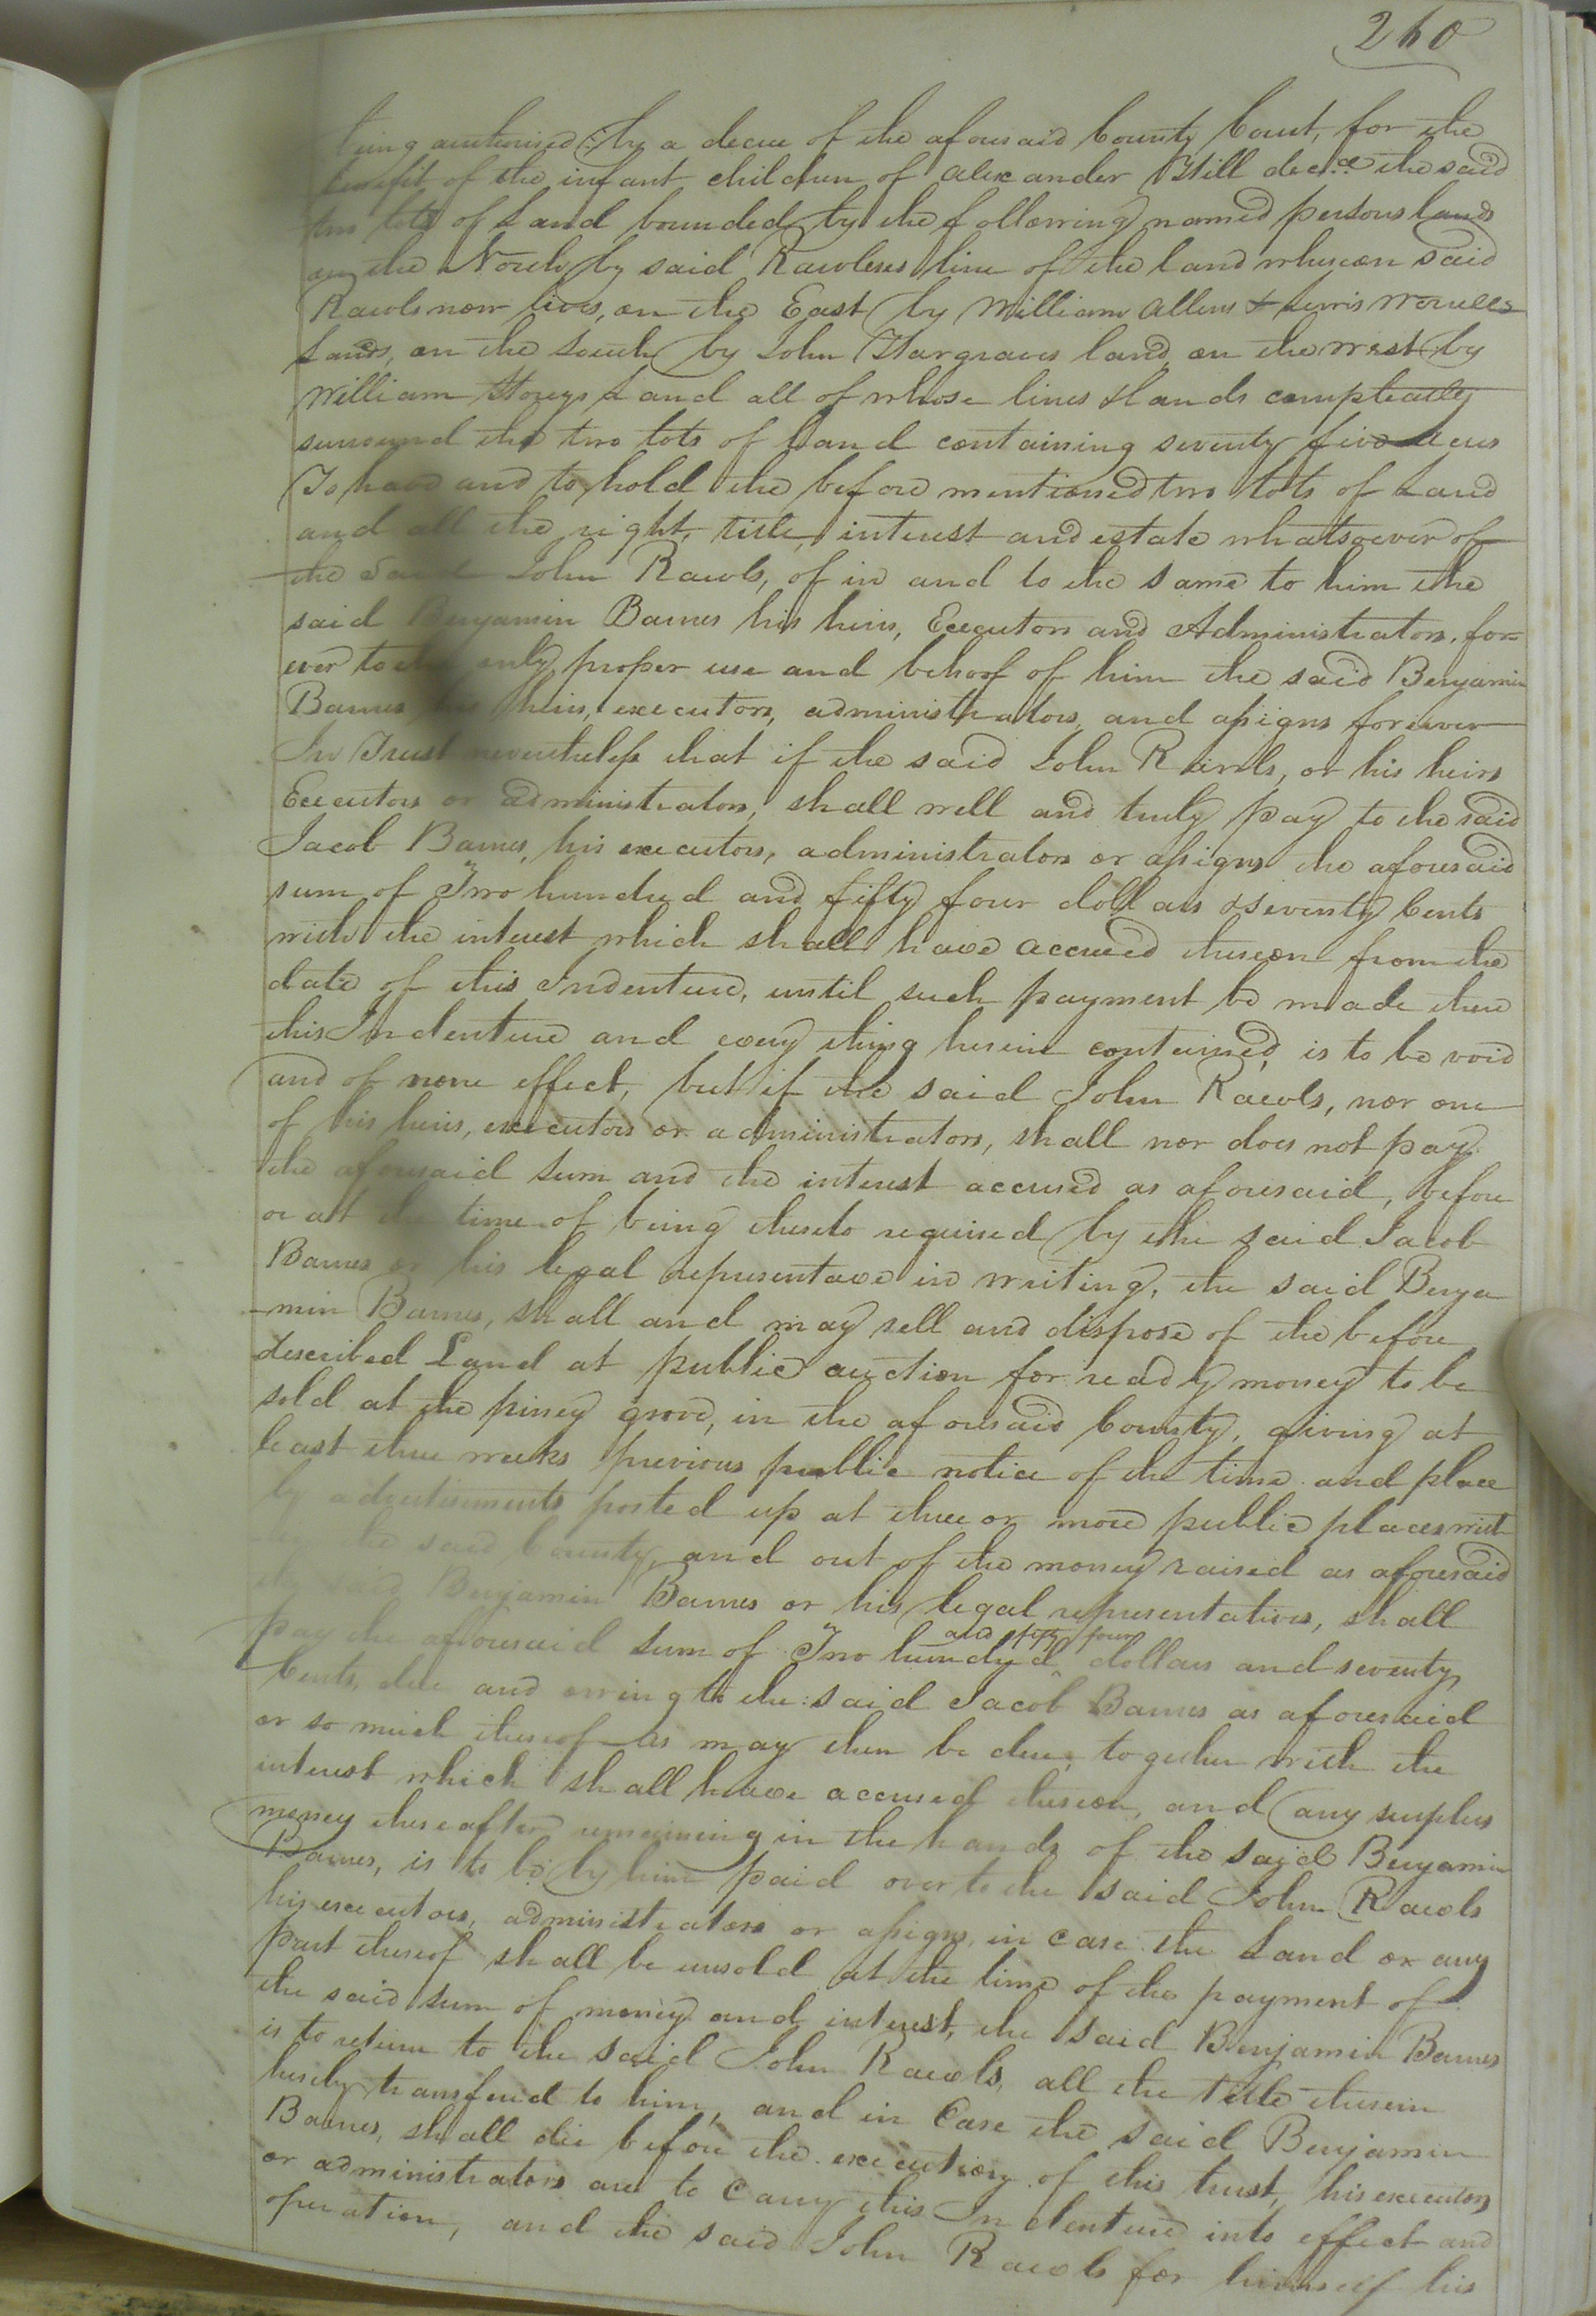 260
being autherised by a decree of the aforesaid County Court, for the
benefit of the infant children of Alexander Hill dec.d the said
two lots of Land bounded by the following named persons lands
on the North by said Rawlses line of the land whereon said
Rawls now lives, on the East by William Allens & Lewis Worrells
Lands, on the South by John Hargraves land, on the west by
William Storeys Land all of whose lines & lands compleatly
surround the two lots of Land containing seventy five acres
To have and to hold the before mentioned two lots of Land
and all the right, title, interest and estate whatsoever of
the said John Rawls, of in and to the same to him the
said Benjamin Barnes his heirs, Executors and Administrators, for=
ever to the only proper use and behoof of him the said Benjamin
Barnes his heirs, executors, administrators, and assigns forever
In Trust nevertheless that if the said John Rawls, or his heirs
Executors or administrators, shall well and truly pay to the said
Jacob Barnes, his executors, administrators or assigns the aforesaid
sum of Two hundred and fifty four dollars & seventy Cents
with the interest which shall have accrued thereon from the
date of this Indenture, until such payment be made then
this Indenture and every thing herein contained, is to be void
and of none effect, but if the said John Rawls, nor one
of his heirs, executors or administrators, shall nor does not pay
the aforesaid sum and the interest accrued as aforesaid, before
or at the time of being thereto required by the said Jacob
Barnes or his legal representave in writing, the said Benja
-min Barnes, shall and may sell and dispose of the before
described Land at public auction for ready money to be
sold at the piney grove, in the aforesaid County, giving at
least three weeks previous public notice of the time and place
by advertisements posted up at three or more public places with
the said County, and out of the money raised as aforesaid
the said Benjamin Barnes or his legal representatives, shall
pay the aforesaid sum of Two hundred and fifty four dollars and seventy
Cents, due and owing to the said Jacob Barnes as aforesaid
or so much thereof as may then be due, together with the
interest which shall have accrued thereon, and any surplus
money thereafter remaining in the hands of the said Benjamin
Barnes, is to be by him paid over to the said John Rawls
his executors, administrators or assigns, in case the Land or any
part thereof shall be unsold at the time of the payment of
the said sum of money and interest, the said Benjamin Barnes
is to return to the said John Rawls, all the title therein
hereby transferred to him, and in Case the said Benjamin
Barnes, shall die before the execution of this trust, his executors
or administrators are to Carry this Indenture into effect and
operation, and the said John Rawls for himself his